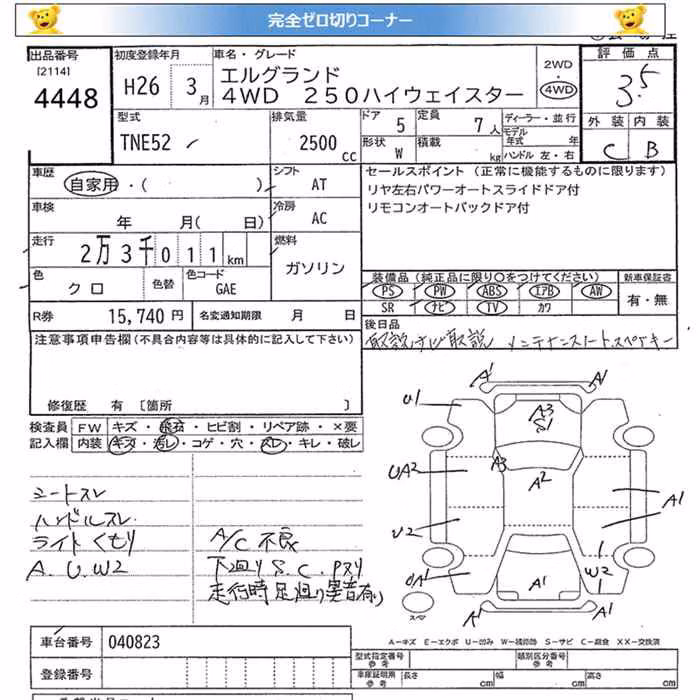 完全ゼロ切りコーナー
出品番号
[2114]
4448
初度登録年月
H26 3月
車名・グレード
エルグランド
4WD 250ハイウェイスター
2WD
4WD
評価点
3.5
外装 内装
C B
型式
TNE52
排気量
2500cc
ドア 5
定員 7人
形状 W
積載 kg
ディーラー・並行
モデル年式 年
ハンドル 左・右
車歴
自家用・( )
シフト AT
車検
年 月( 日)
冷房 AC
走行
2万3千011km
燃料 ガソリン
色 クロ
色替
色コード GAE
R券 15,740円
名変通知期限 月 日
セールスポイント(正常に機能するものに限ります)
リヤ左右パワーオートスライドドア付
リモコンオートバックドア付
装備品(純正品に限り〇をつけてください)
PS PW ABS エアB AW
SR ナビ TV カワ
新車保証書
有・無
後日品
取説 ナビ取説 メンテナンスノート スペアキー
注意事項申告欄(不具合内容等は具体的に記入して下さい)
修復歴 有 [箇所 ]
検査員記入欄
FW キズ・飛石・ヒビ割・リペア跡・×要
内装 キズ・汚レ・コゲ・穴・スレ・キレ・破レ
シートスレ
ハンドルスレ
ライトくもり
A.U.W2
A/C 不良
下廻りS.C.Pスリ
走行時足廻り異音有り
A1 A1
U1
A3
S1
A3
A2
UA2
A1
U2
UA1
W2
1
1
A1
A1 A1
スペア
A-キズ E-エクボ U-凹み W-補修跡 S-サビ C-腐食 XX-交換済
車台番号 040823
登録番号
型式指定番号 参考
類別区分番号 参考
車庫証明用 参考
長さ cm
幅 cm
高さ cm